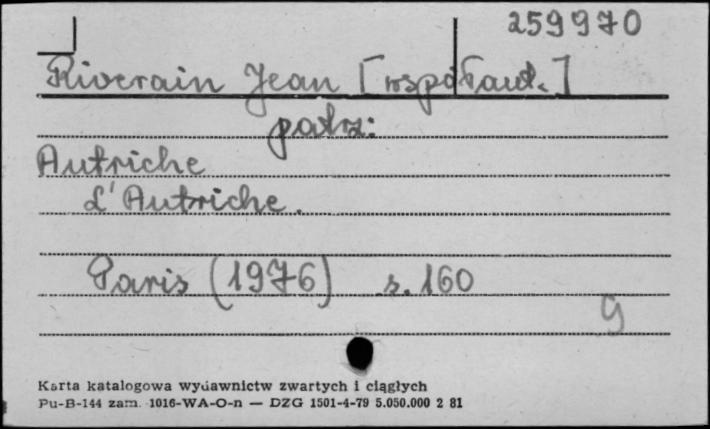 259970
Riverain Jean [współaut.]
patrz:
Autriche
L'Autriche.
Paris (1976) s. 160
9
Karta katalogowa wydawnictw zwartych i ciągłych
Pu-B-144 zam. 1016-WA-O-n — DZG 1501-4-79 5.050.000 2 81